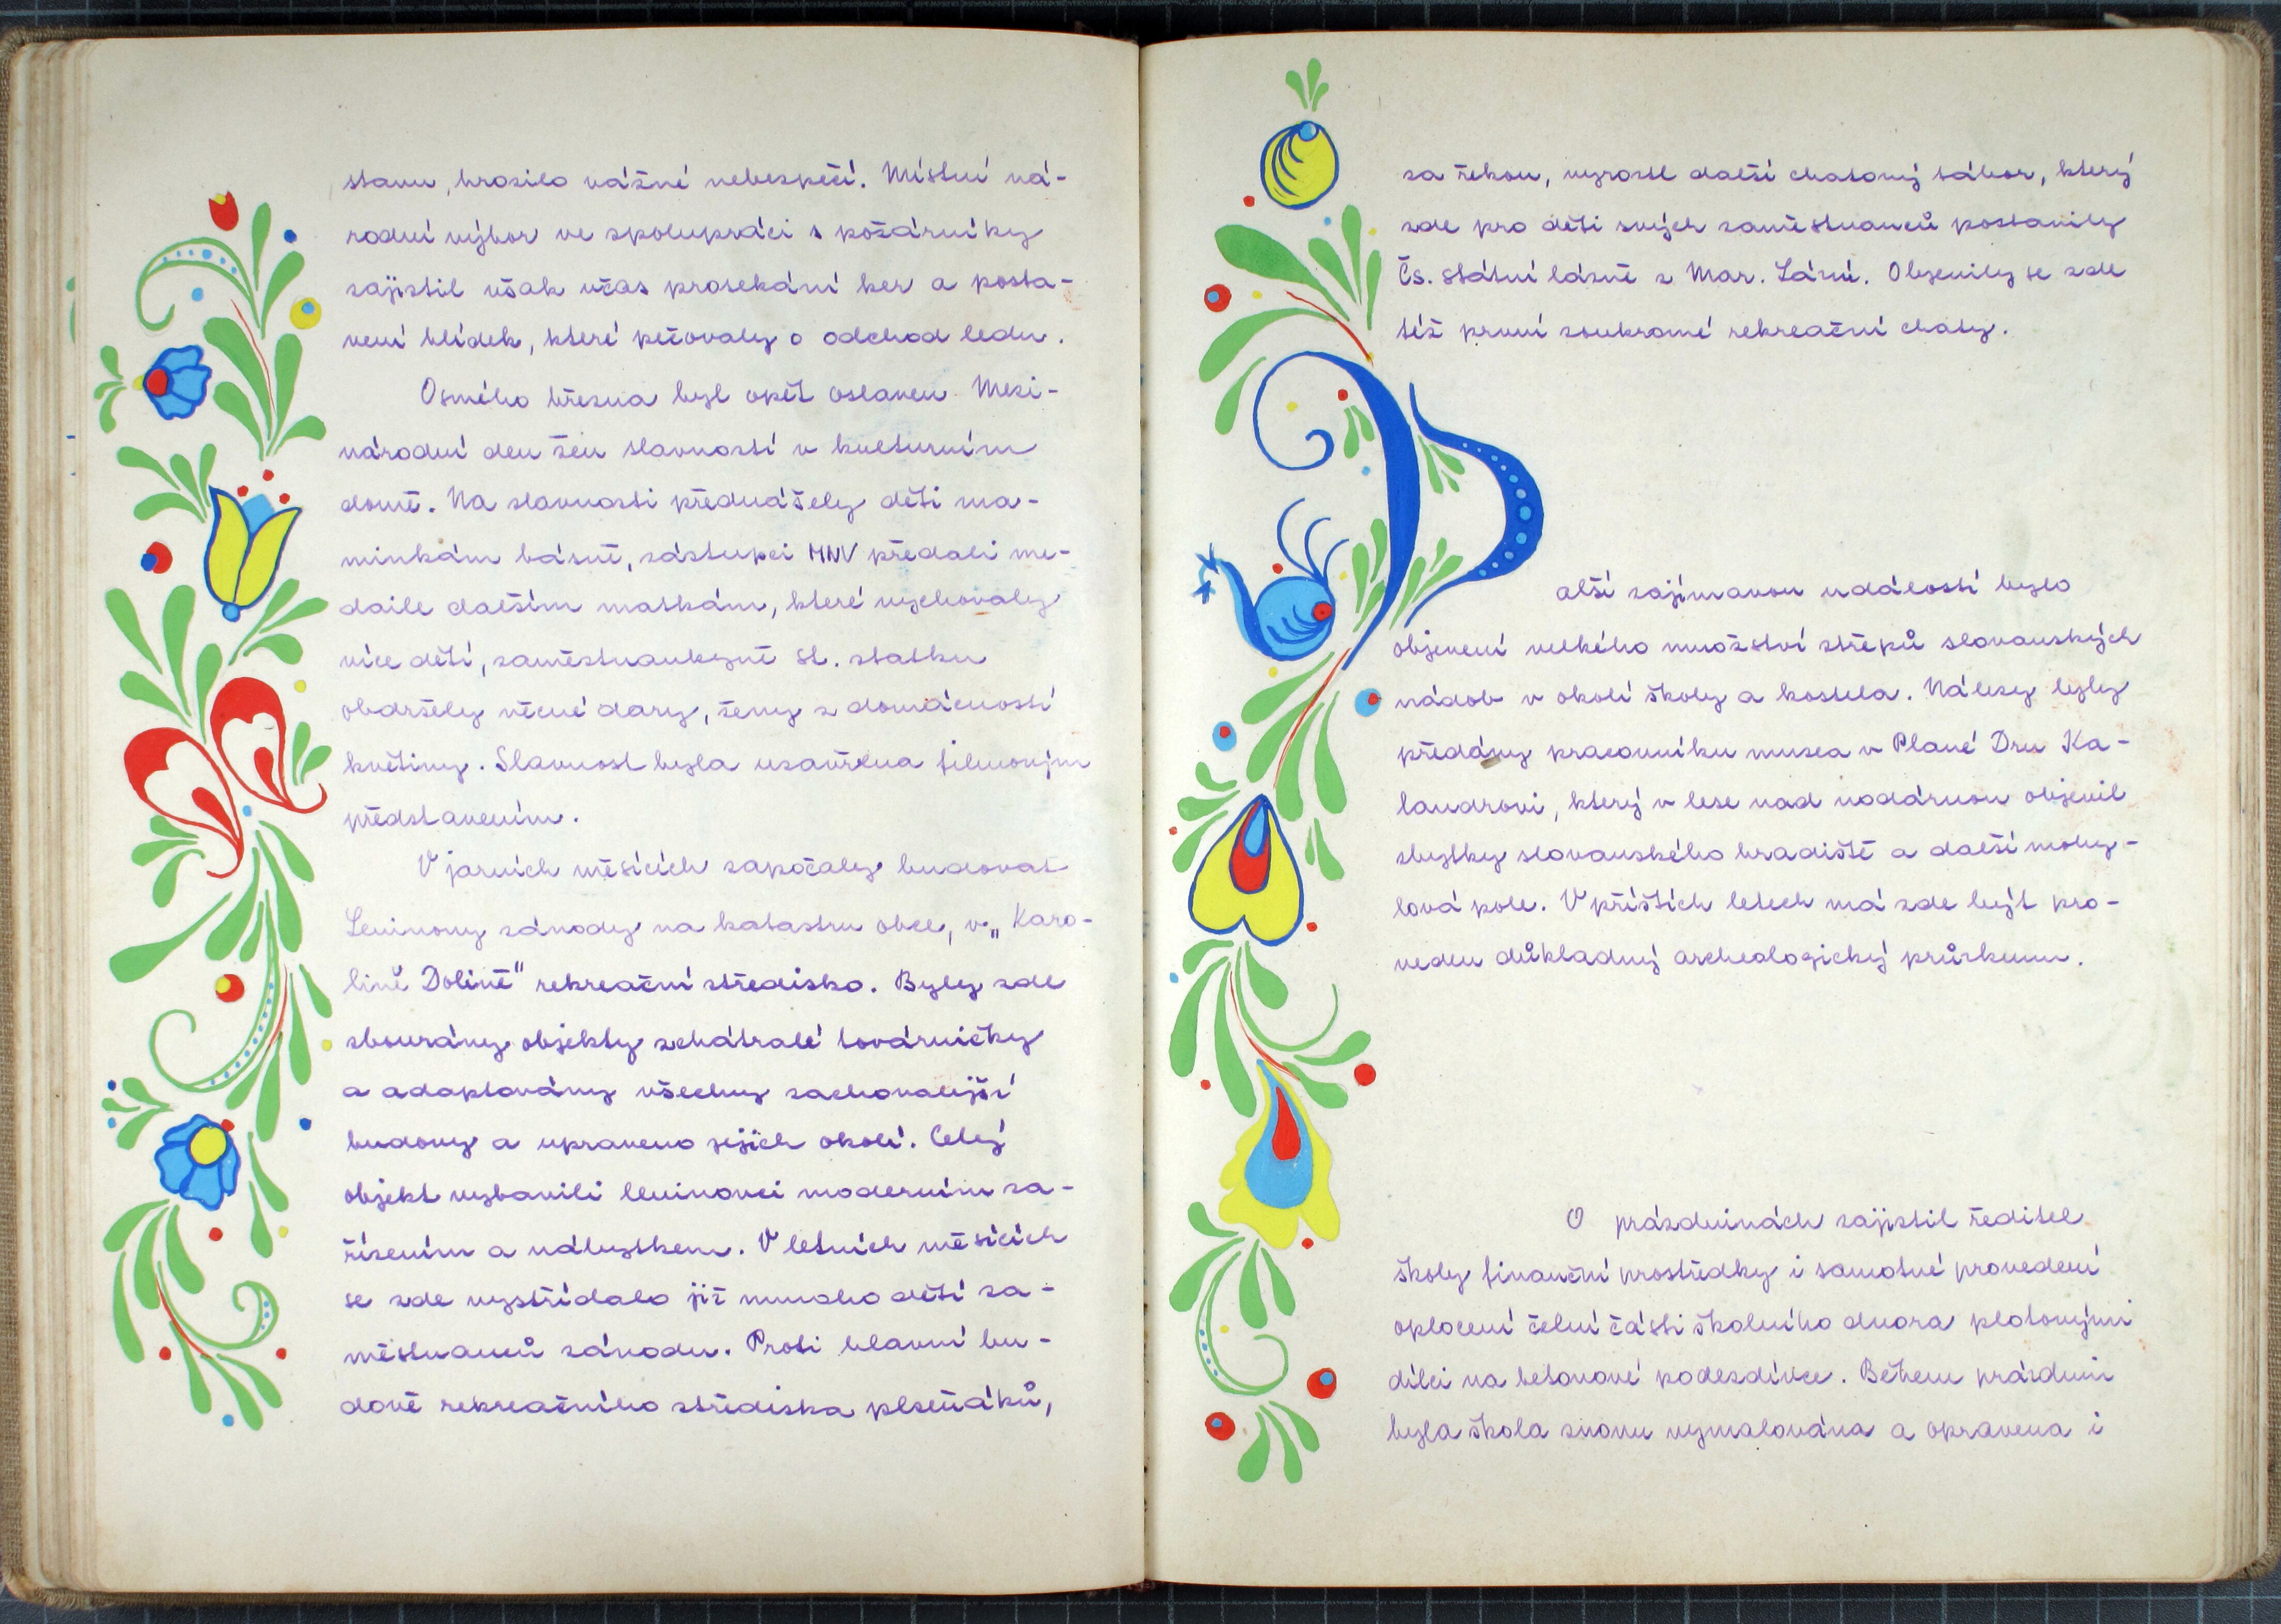 stavu, hrozilo vážné nebezpečí. Místní ná-
rodní výbor ve spolupráci s požárníky
zajistil však včas prosekání ker a posta-
vení hlídek, které pečovaly o odchod ledu.
Osmého března byl opět oslaven Mezi-
národní den žen slavností v kulturním
domě. Na slavnosti přednášely děti ma-
minkám básně, zástupci MNV předali me-
daile dalším matkám, které vychovaly
více dětí, zaměstnankyně st. statku
obdržely věcné dary, ženy z domácnosti
květiny. Slavnost byla uzavřena filmovým
představením.
V jarních měsících započaly budovat
Leninovy závody na katastru obce, v „Karo-
lině Dolině" rekreační středisko. Byly zde
zbourány objekty zchátralé továrničky
a adaptovány všechny zachovalejší
budovy a upraveno jejich okolí. Celý
objekt vybavili leninovci moderním za-
řízením a nábytkem. V letních měsících
se zde vystřídalo již mnoho dětí za-
městnanců závodu. Proti hlavní bu-
dově rekreačního střediska plzeňáků,
za řekou, vyrostl další chatový tábor, který
zde pro děti svých zaměstnanců postavily
Čs. státní lázně z Mar. Lázní. Objevily se zde
též první soukromé rekreační chaty.
Další zajímavou událostí bylo
objevení velkého množství střepů slovanských
nádob v okolí školy a kostela. Nálezy byly
předány pracovníku musea v Plané Dru Ka-
landrovi, který v lese nad vodárnou objevil
zbytky slovanského hradiště a další mohy-
lová pole. V příštích letech má zde být pro-
veden důkladný archeologický průzkum.
O prázdninách zajistil ředitel
školy finanční prostředky i samotné provedení
oplocení čelní části školního dvora plotovými
dílci na betonové podezdívce. Během prázdnin
byla škola znovu vymalována a opravena i